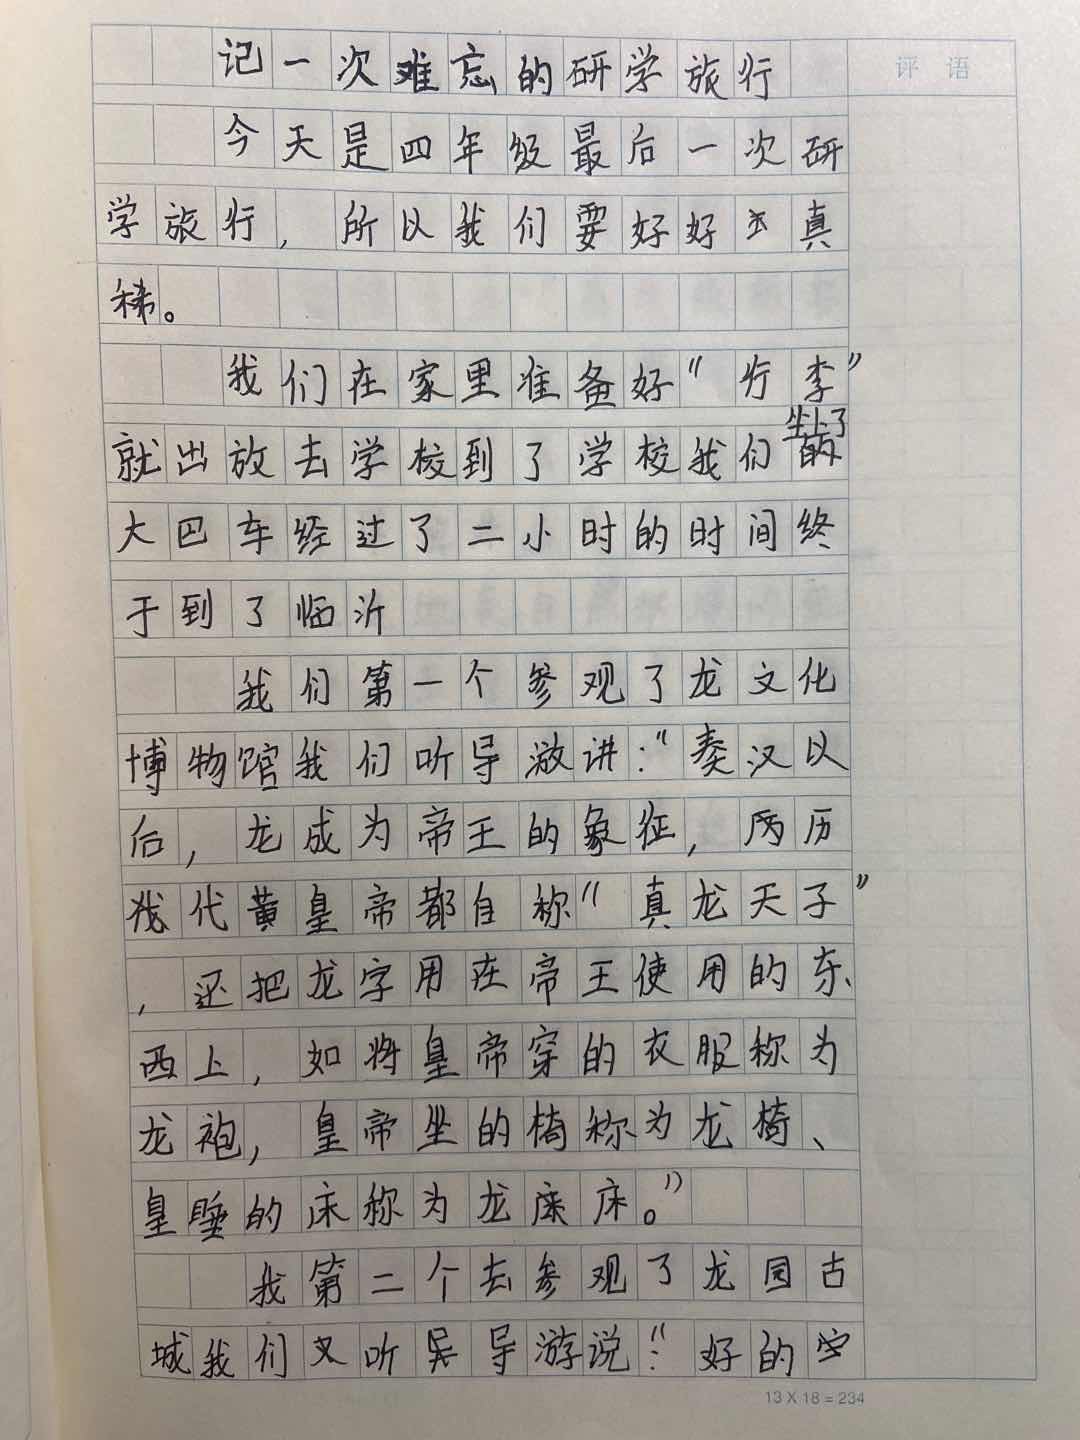 记一次难忘的研学旅行
评语
今天是四年级最后一次研
学旅行，所以我们要好好真
稀。
我们在家里准备好“行李”
就出放去学校到了学校我们坐上了
大巴车经过了二小时的时间终
于到了临沂
我们第一个参观了龙文化
博物馆我们听导游讲：“秦汉以
后，龙成为帝王的象征，历
代黄皇帝都自称“真龙天子”
，还把龙字用在帝王使用的东
西上，如将皇帝穿的衣服称为
龙袍，皇帝坐的椅称为龙椅、
皇睡的床称为龙床。”
我第二个去参观了龙园古
城我们又听导游说：“好的字
13 X 18 = 234